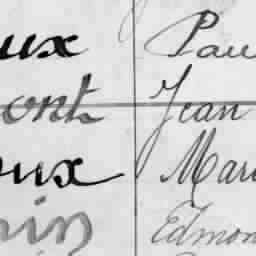 ux Pau
ont Jean
oux Mari
in Edmon